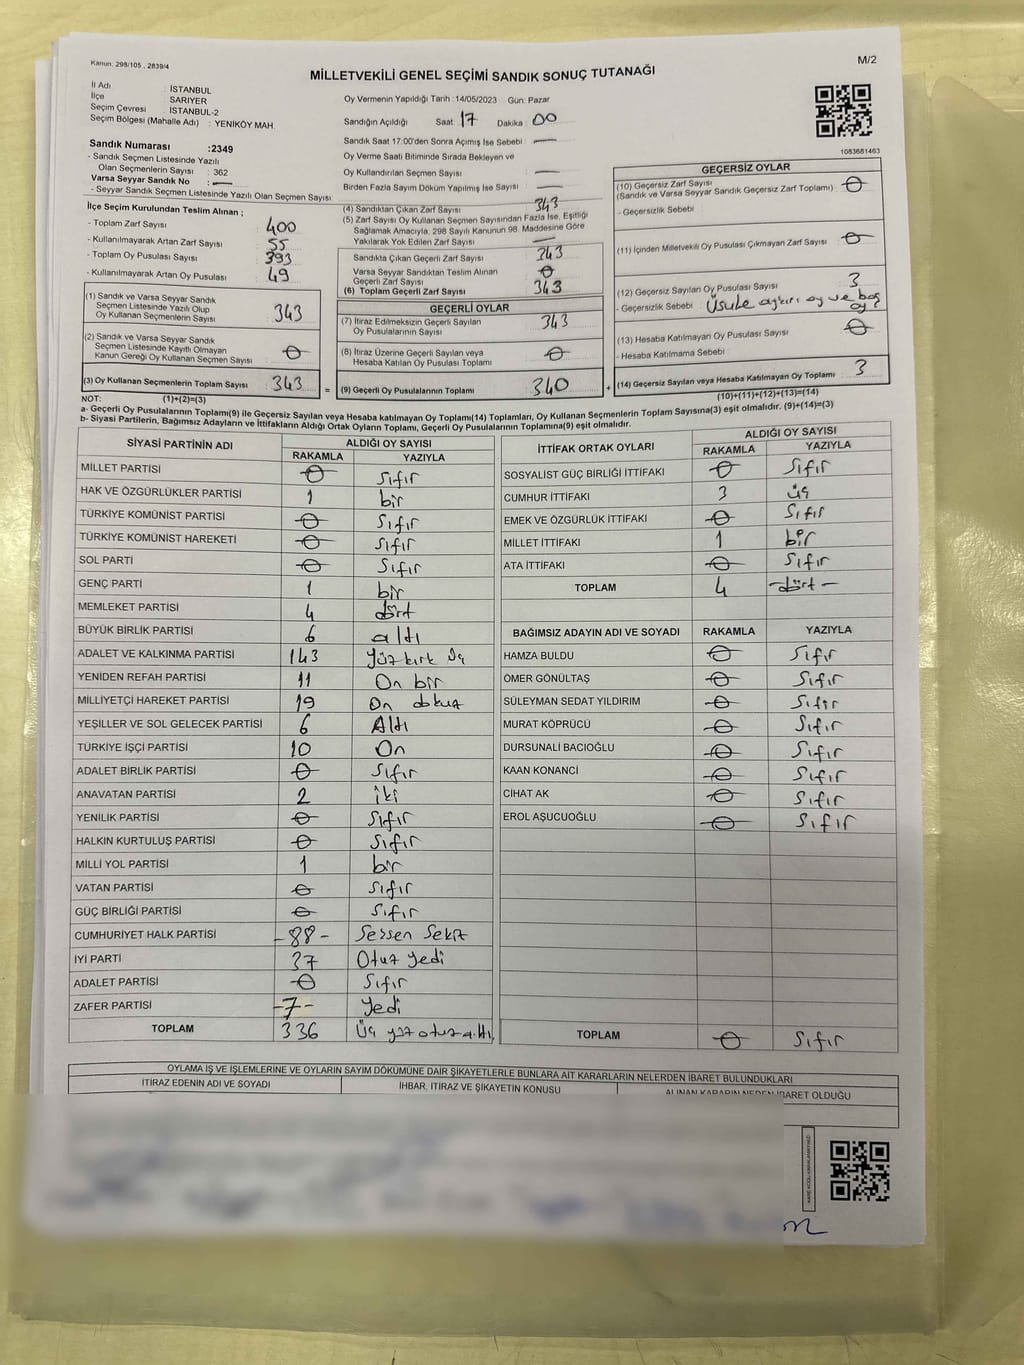 Kanun: 298/105 , 2839/4
M/2
MİLLETVEKİLİ GENEL SEÇİMİ SANDIK SONUÇ TUTANAĞI
İl Adı : İSTANBUL
İlçe : SARIYER
Seçim Çevresi : İSTANBUL-2
Seçim Bölgesi (Mahalle Adı) : YENİKÖY MAH.
Sandık Numarası :2349
- Sandık Seçmen Listesinde Yazılı Olan Seçmenlerin Sayısı : 362
Varsa Seyyar Sandık No : —
- Seyyar Sandık Seçmen Listesinde Yazılı Olan Seçmen Sayısı:
Oy Vermenin Yapıldığı Tarih :14/05/2023 Gün: Pazar
Sandığın Açıldığı Saat: 17 Dakika: 00
Sandık Saat 17:00'den Sonra Açımış İse Sebebi : —
Oy Verme Saati Bitiminde Sırada Bekleyen ve
Oy Kullandırılan Seçmen Sayısı : —
Birden Fazla Sayım Döküm Yapılmış İse Sayısı : —
1083681463
İlçe Seçim Kurulundan Teslim Alınan ;
- Toplam Zarf Sayısı : 400
- Kullanılmayarak Artan Zarf Sayısı : 55
- Toplam Oy Pusulası Sayısı : 393
- Kullanılmayarak Artan Oy Pusulası : 49
(1) Sandık ve Varsa Seyyar Sandık
Seçmen Listesinde Yazılı Olup
Oy Kullanan Seçmenlerin Sayısı : 343
(2) Sandık ve Varsa Seyyar Sandık
Seçmen Listesinde Kayıtlı Olmayan
Kanun Gereği Oy Kullanan Seçmen Sayısı : 0
(3) Oy Kullanan Seçmenlerin Toplam Sayısı : 343
(4) Sandıktan Çıkan Zarf Sayısı : 343
(5) Zarf Sayısı Oy Kullanan Seçmen Sayısından Fazla İse, Eşitliği
Sağlamak Amacıyla, 298 Sayılı Kanunun 98. Maddesine Göre
Yakılarak Yok Edilen Zarf Sayısı : —
Sandıkta Çıkan Geçerli Zarf Sayısı : 343
Varsa Seyyar Sandıktan Teslim Alınan
Geçerli Zarf Sayısı : 0
(6) Toplam Geçerli Zarf Sayısı : 343
GEÇERLİ OYLAR
(7) İtiraz Edilmeksizin Geçerli Sayılan
Oy Pusulalarının Sayısı : 343
(8) İtiraz Üzerine Geçerli Sayılan veya
Hesaba Katılan Oy Pusulası Toplamı : 0
= (9) Geçerli Oy Pusulalarının Toplamı : 340
GEÇERSİZ OYLAR
(10) Geçersiz Zarf Sayısı
(Sandık ve Varsa Seyyar Sandık Geçersiz Zarf Toplamı) : 0
- Geçersizlik Sebebi :
(11) İçinden Milletvekili Oy Pusulası Çıkmayan Zarf Sayısı : 0
(12) Geçersiz Sayılan Oy Pusulası Sayısı : 3
- Geçersizlik Sebebi : Usule aykırı oy ve boş oy
(13) Hesaba Katılmayan Oy Pusulası Sayısı : 0
- Hesaba Katılmama Sebebi :
+ (14) Geçersiz Sayılan veya Hesaba Katılmayan Oy Toplamı : 3
(10)+(11)+(12)+(13)=(14)
NOT: (1)+(2)=(3)
a- Geçerli Oy Pusulalarının Toplamı(9) ile Geçersiz Sayılan veya Hesaba katılmayan Oy Toplamı(14) Toplamları, Oy Kullanan Seçmenlerin Toplam Sayısına(3) eşit olmalıdır. (9)+(14)=(3)
b- Siyasi Partilerin, Bağımsız Adayların ve İttifakların Aldığı Ortak Oyların Toplamı, Geçerli Oy Pusulalarının Toplamına(9) eşit olmalıdır.
SİYASİ PARTİNİN ADI ALDIĞI OY SAYISI
RAKAMLA YAZIYLA
MİLLET PARTİSİ 0 Sıfır
HAK VE ÖZGÜRLÜKLER PARTİSİ 1 bir
TÜRKİYE KOMÜNİST PARTİSİ 0 Sıfır
TÜRKİYE KOMÜNİST HAREKETİ 0 Sıfır
SOL PARTİ 0 Sıfır
GENÇ PARTİ 1 bir
MEMLEKET PARTİSİ 4 dört
BÜYÜK BİRLİK PARTİSİ 6 altı
ADALET VE KALKINMA PARTİSİ 143 Yüz kırk üç
YENİDEN REFAH PARTİSİ 11 On bir
MİLLİYETÇİ HAREKET PARTİSİ 19 On dokuz
YEŞİLLER VE SOL GELECEK PARTİSİ 6 Altı
TÜRKİYE İŞÇİ PARTİSİ 10 On
ADALET BİRLİK PARTİSİ 0 Sıfır
ANAVATAN PARTİSİ 2 iki
YENİLİK PARTİSİ 0 Sıfır
HALKIN KURTULUŞ PARTİSİ 0 Sıfır
MİLLİ YOL PARTİSİ 1 bir
VATAN PARTİSİ 0 Sıfır
GÜÇ BİRLİĞİ PARTİSİ 0 Sıfır
CUMHURİYET HALK PARTİSİ -88- Seksen Sekiz
İYİ PARTİ 37 Otuz yedi
ADALET PARTİSİ 0 Sıfır
ZAFER PARTİSİ -7- Yedi
TOPLAM 336 Üç yüz otuz altı
İTTİFAK ORTAK OYLARI ALDIĞI OY SAYISI
RAKAMLA YAZIYLA
SOSYALİST GÜÇ BİRLİĞİ İTTİFAKI 0 Sıfır
CUMHUR İTTİFAKI 3 üç
EMEK VE ÖZGÜRLÜK İTTİFAKI 0 Sıfır
MİLLET İTTİFAKI 1 bir
ATA İTTİFAKI 0 Sıfır
TOPLAM 4 -dört-
BAĞIMSIZ ADAYIN ADI VE SOYADI RAKAMLA YAZIYLA
HAMZA BULDU 0 Sıfır
ÖMER GÖNÜLTAŞ 0 Sıfır
SÜLEYMAN SEDAT YILDIRIM 0 Sıfır
MURAT KÖPRÜCÜ 0 Sıfır
DURSUNALİ BACIOĞLU 0 Sıfır
KAAN KONANCİ 0 Sıfır
CİHAT AK 0 Sıfır
EROL AŞUCUOĞLU 0 Sıfır
TOPLAM 0 Sıfır
OYLAMA İŞ VE İŞLEMLERİNE VE OYLARIN SAYIM DÖKÜMÜNE DAİR ŞİKAYETLERLE BUNLARA AİT KARARLARIN NELERDEN İBARET BULUNDUKLARI
İTİRAZ EDENİN ADI VE SOYADI İHBAR, İTİRAZ VE ŞİKAYETİN KONUSU ALINAN KARARIN NEDEN İBARET OLDUĞU